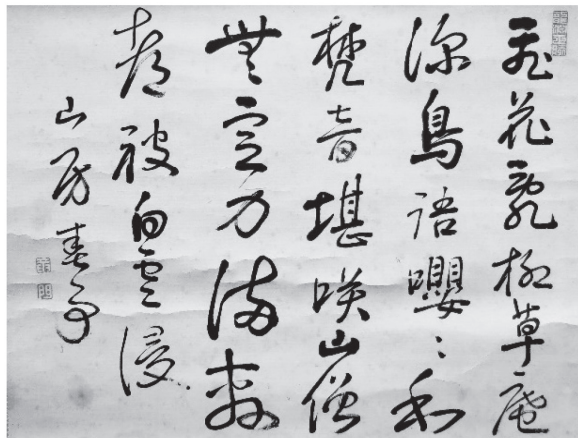 飛花亂柳草庵
深鳥語嚶〻和
梵音堪咲山僧
無定力滿
都被白雲侵
山房春事